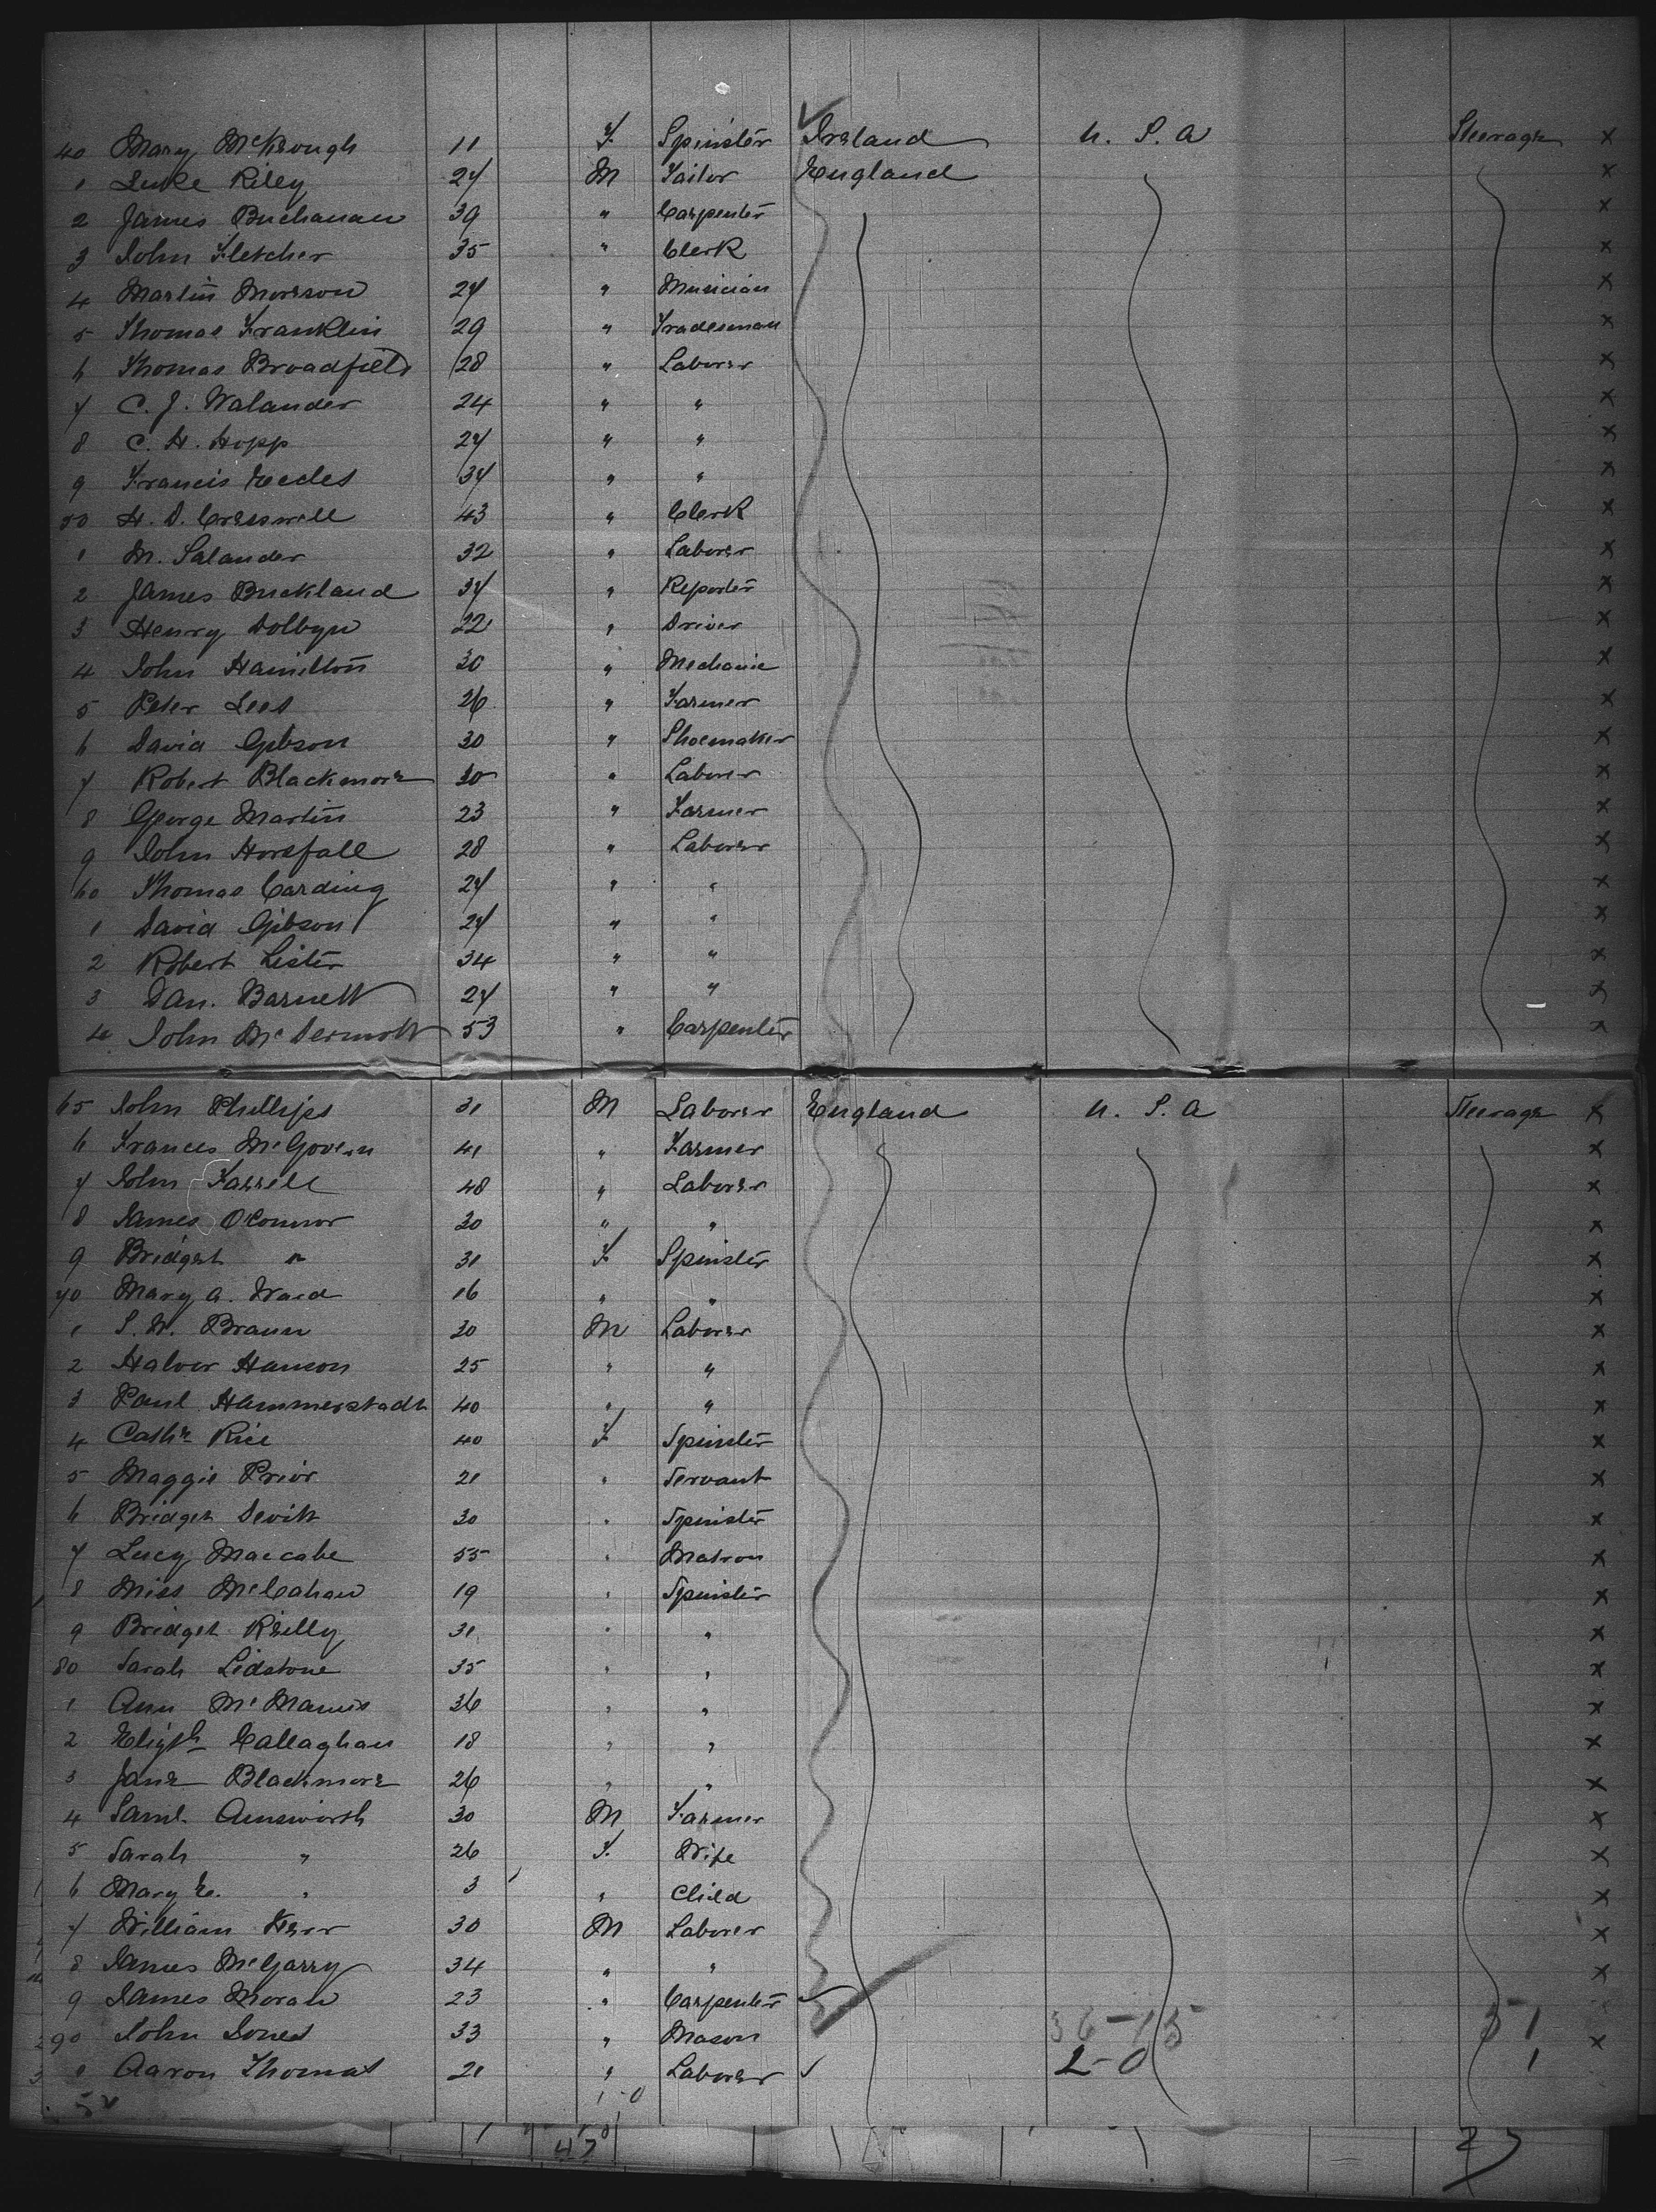 40 Mary McKeough 11 F. Spinster Ireland U. S. A Steerage x
1 Luke Riley 27 M Tailor England x
2 James Buchanan 39 " Carpenter x
3 John Fletcher 35 " Clerk x
4 Martin Morrson 27 " Musician x
5 Thomas Franklin 29 " Tradesman x
6 Thomas Broadfield 28 " Laborer x
7 C. J. Walander 24 " " x
8 C. H. Hopp 27 " " x
9 Francis Eccles 37 " " x
50 H. D. Cresswell 43 " Clerk x
1 M. Salander 32 " Laborer x
2 James Buckland 37 " Reporter x
3 Henry Dolbyn 22 " Driver x
4 John Hamilton 30 " Mechanic x
5 Peter Lees 26 " Farmer x
6 David Gibson 30 " Shoemaker x
7 Robert Blackmore 30 " Laborer x
8 George Martin 23 " Farmer x
9 John Horsfall 28 " Laborer x
60 Thomas Carding 27 " " x
1 David Gibson 27 " " x
2 Robert Lister 34 " " x
3 Dan. Barnett 27 " " x
4 John McDermott 53 " Carpenter x
65 John Phillips 31 M Laborer England U. S. A Steerage x
6 Frances McGovern 41 " Farmer x
7 John Farrell 48 " Laborer x
8 James O'Connor 30 " " x
9 Bridget " 31 F Spinster x
70 Mary A. Ward 16 " " x
1 S. W. Braun 30 M Laborer x
2 Halvor Hanson 25 " " x
3 Paul Hammerstadt 40 " " x
4 Cathe Rice 40 F Spinster x
5 Maggie Prior 21 " Servant x
6 Bridget Devitt 30 " Spinster x
7 Lucy Maccabe 55 " Matron x
8 Miss McCahan 19 " Spinster x
9 Bridget Reilly 31 " " x
80 Sarah Lidstone 35 " " x
1 Ann McManus 36 " " x
2 Elizth Callaghan 18 " " x
3 Jane Blackmore 26 " " x
4 Saml. Ainsworth 30 M Farmer x
5 Sarah " 26 F. Wife x
6 Mary E. " 3 " Child x
7 William Kerr 30 M Laborer x
8 James McGarry 34 " " x
9 James Moran 23 " Carpenter
90 John Jones 33 " Mason 36-15 51 x
1 Aaron Thomas 21 " Laborer 2-0 1
52 1-0
47 27